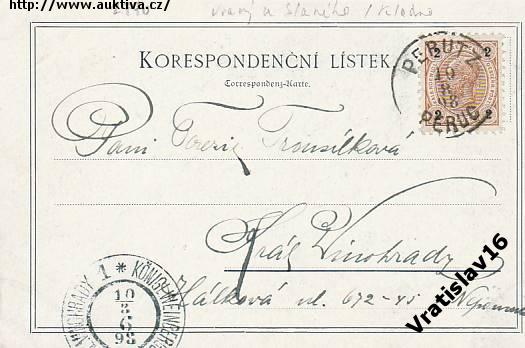 http://www.auktiva.cz/
Vraný u Slaného / Kladno
KORESPONDENČNÍ LÍSTEK.
Correspondenz-Karte.
2 2
2 2
PERUTZ
10
8
98
PERUC
Paní
Trousílková
Král. Vinohrady
Hálková ul. 672-45
VINOHRADY 1 * KÖNIGL. WEINBERGE
10
8
6
98
Vratislav16